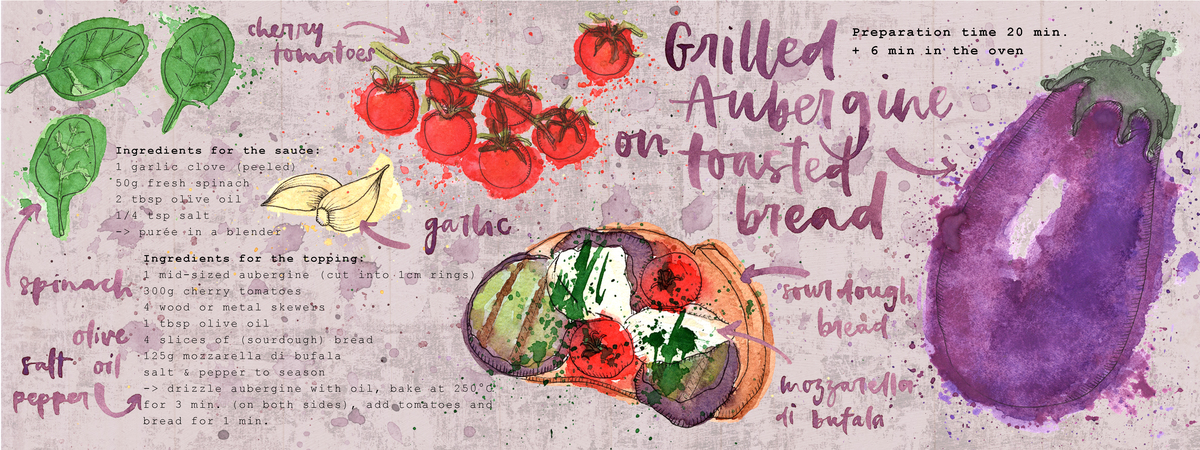 cherry
tomatoes
Grilled
Aubergine
on toasted
bread
Preparation time 20 min.
+ 6 min in the oven
Ingredients for the sauce:
1 garlic clove (peeled)
50g fresh spinach
2 tbsp olive oil
1/4 tsp salt
-> purée in a blender
garlic
spinach
Ingredients for the topping:
1 mid-sized aubergine (cut into 1cm rings)
300g cherry tomatoes
4 wood or metal skewers
1 tbsp olive oil
4 slices of (sourdough) bread
125g mozzarella di bufala
salt & pepper to season
-> drizzle aubergine with oil, bake at 250°c
for 3 min. (on both sides), add tomatoes and
bread for 1 min.
olive
oil
salt
pepper
sourdough
bread
mozzarella
di bufala